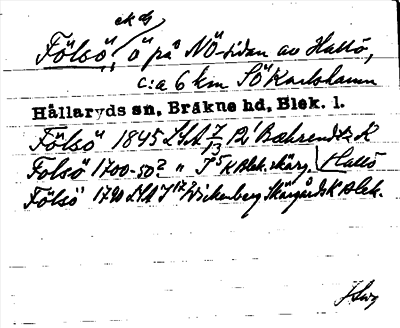 ek dg
Fölsö, ö på NÖ-sidan av Hallö,
c:a 6 km SÖ Karlshamn
Hällaryds sn, Bräkne hd, Blek. l.
Fölsö 1845 LSA 7/13 Bæhrendtz K
Fölsö 1700-50? " K Blek. skärg. Hallö
Fölsö 1790 LSA Wickenberg Skärgårds K Blek.